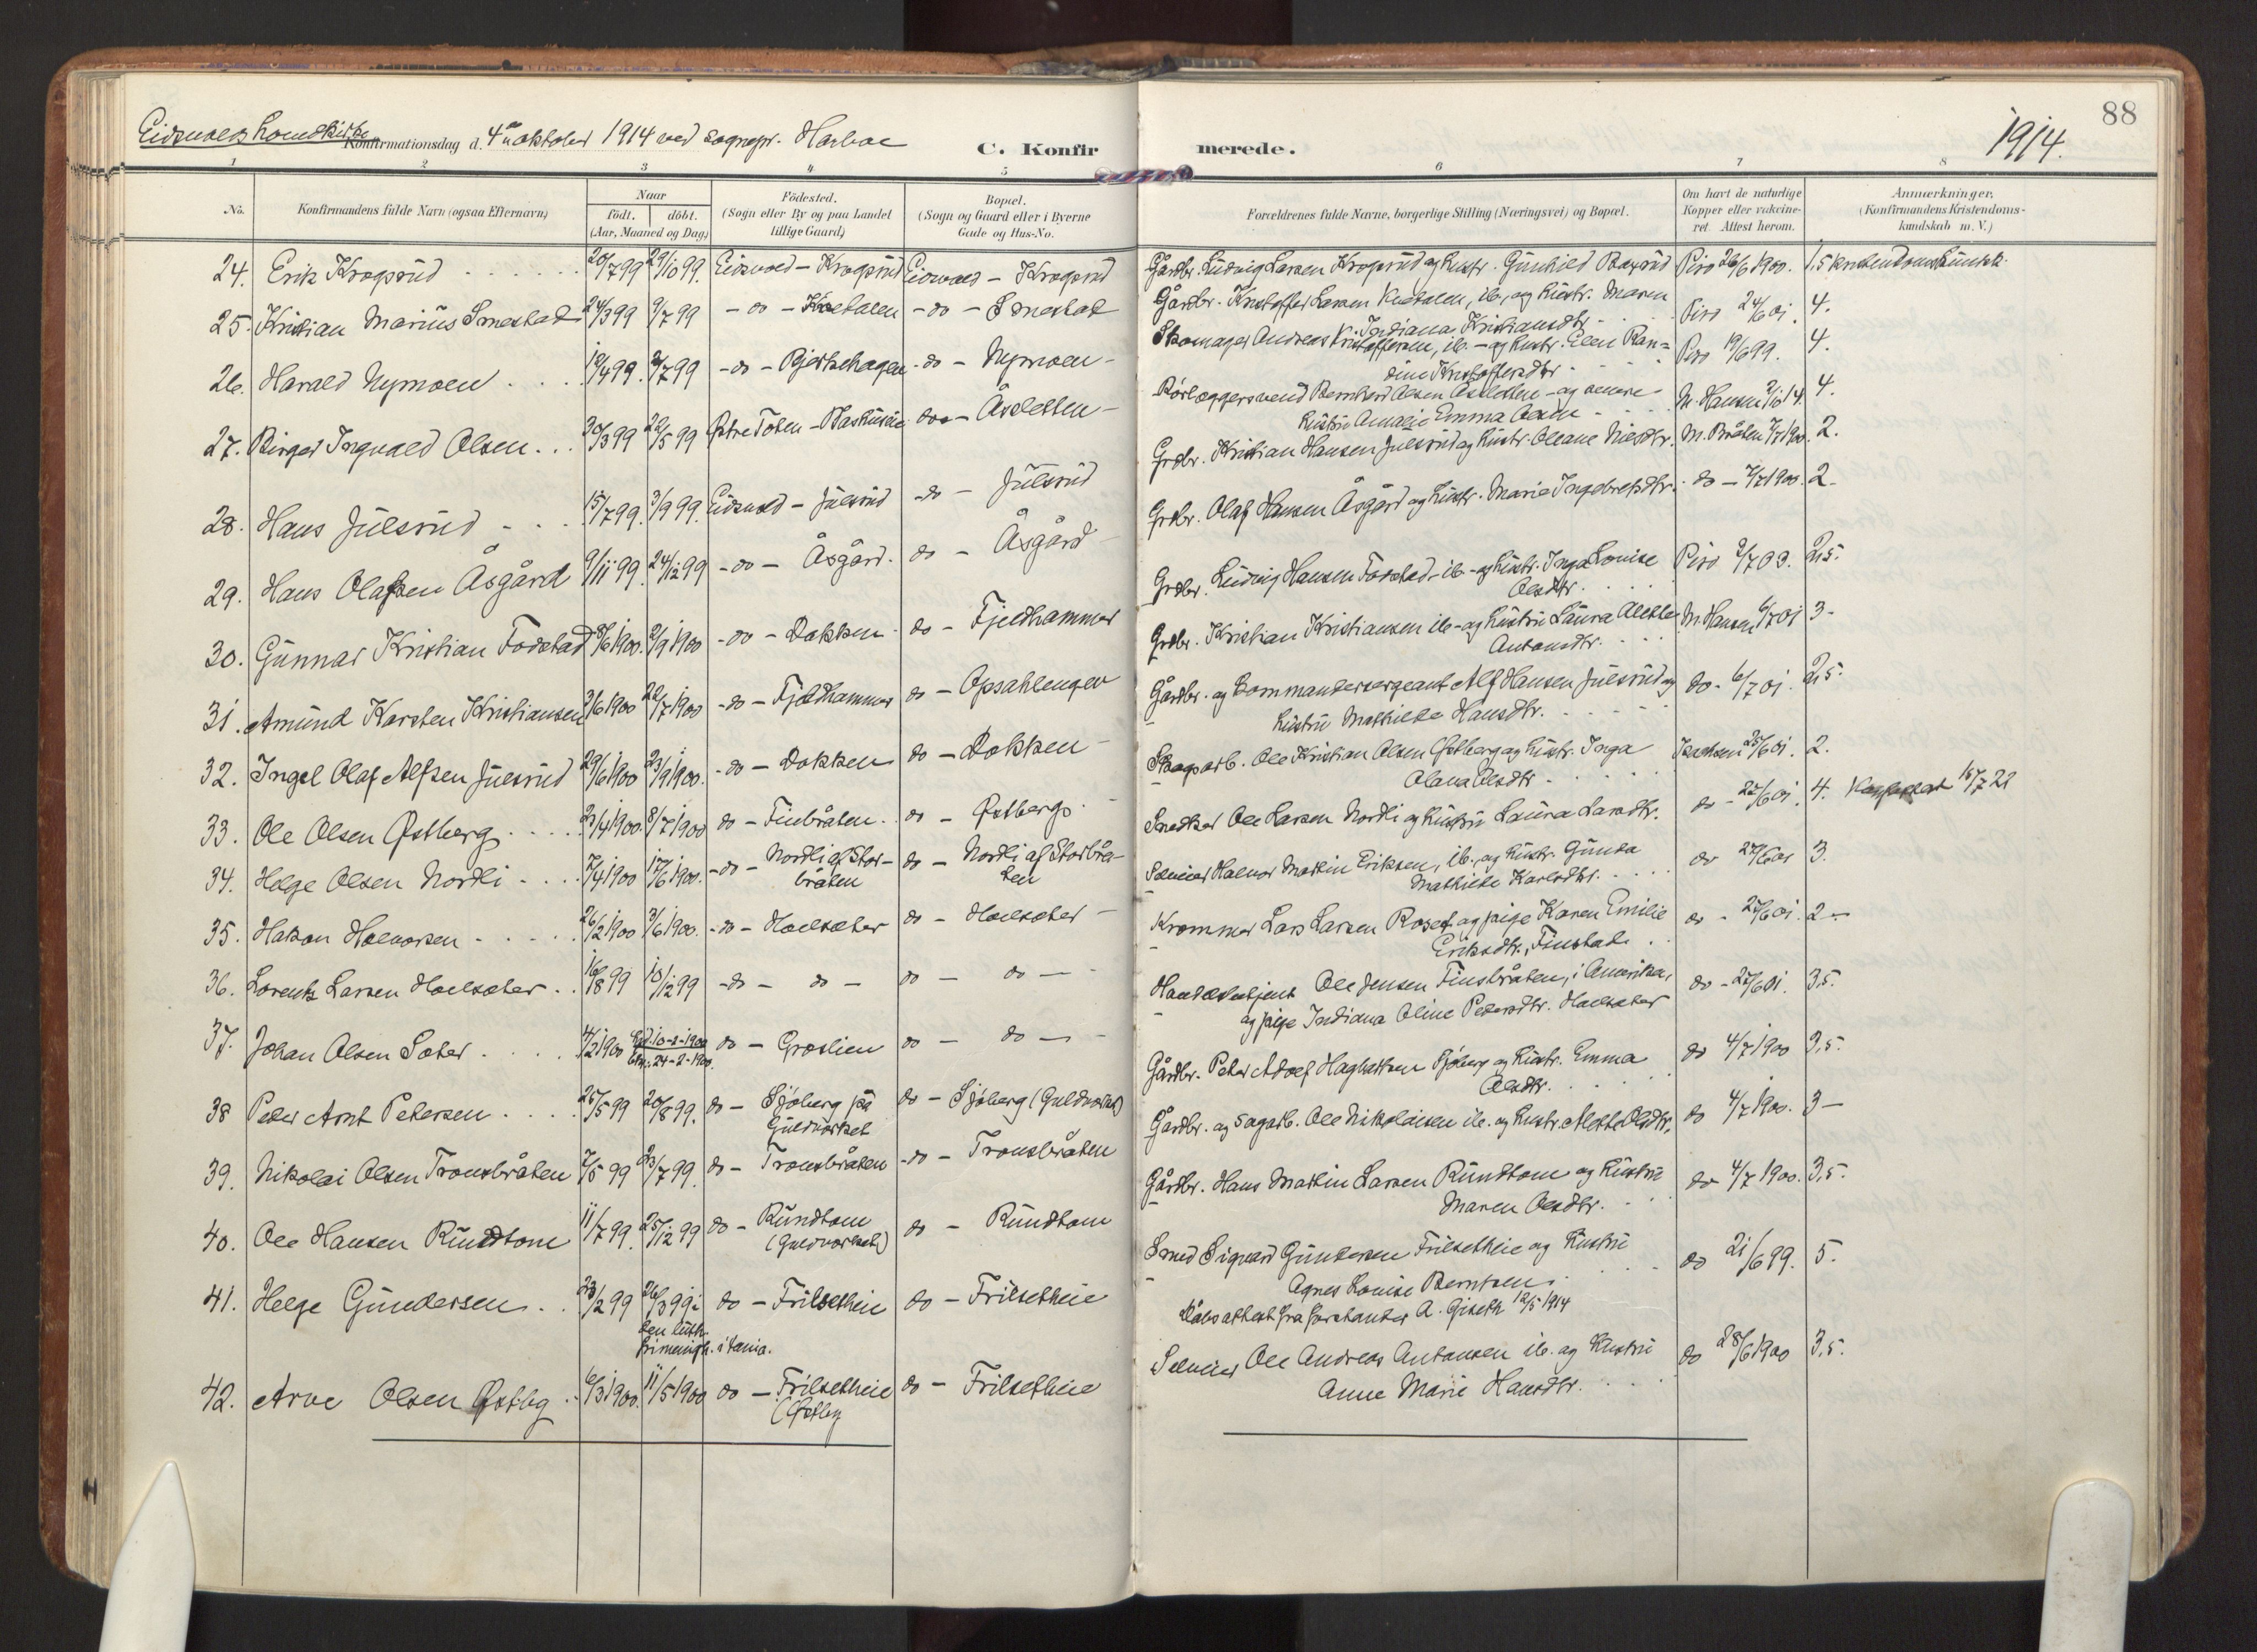 88
Eidsvolds Landskirke
Konfirmationsdag d. 4de oktober 1914 ved sognepr. Harboe
C. Konfir
merede.
1914.
1 2 3 4 5 6 7 8
No.
Konfirmandens fulde Navn (ogsaa Efternavn)
Naar
födt. döbt.
(Aar, Maaned og Dag)
Födested.
(Sogn eller By og paa Landet
tillige Gaard)
Bopæl.
(Sogn og Gaard eller i Byerne
Gade og Hus-No.
Forældrenes fulde Navne, borgerlige Stilling (Næringsvei) og Bopæl.
Om havt de naturlige
Kopper eller vakcine-
ret. Attest herom.
Anmærkninger.
(Konfirmandens Kristendoms-
kundskab m. V.)
24. Erik Krogsrud 20/7 99 29/10 99. Eidsvold - Krogsrud Eidsvold - Krogsrud Gårdbr. Ludvig Larsen Krogsrud og hustr. Gunhild Piro 26/6 1900. 1.5 kristendomskundsk.
25. Kristian Marius Smestad 24/3 99 9/7 99 - do - - do - Smestad Gårdbr. Kristoffer Larsen ib., og hustr. Maren
Indiana Kristiansdtr. Piro 24/6 01. 4.
26. Harald Nymoen 19/4 99. 2/7 99 - do - Bjerkehagen - do - Nymoen - Skomager Andreas Kristoffersen, ib. - og hustr. Elen Ran=
dine Kristoffersdtr. Piro 19/6 99. 4.
27. Birger Ingvald Olsen 30/3 99 22/5 99 Østre Toten - do - Åsletten - Rörlæggersvend Bernhard Olsen Åsletten - og
hustru Amalie Emma Olsen M. Hansen 2/10 14. 4.
28. Hans Julsrud 15/7 99. 3/9 99. Eidsvold - Julsrud - do - Julsrud Grdbr. Kristian Hansen Julsrud og hustr. Oleane Nilsdtr. M. Bråten 7/7 1900. 2.
29. Hans Olafsen Åsgård 9/11 99. 24/12 99 - do - Åsgård. do - Åsgård Grdbr. Olaf Hansen Åsgård og hustr. Marie Ingebretsdtr. do - 7/7 1900. 2 -
30. Gunnar Kristian Fodstad 8/6 1900. 2/9 1900 - do - Dokken do - Fjeldhammer Grdbr. Ludvig Hansen Fodstad - ib. - og hustr. Inga Louise
Olsdtr. Piro 2/7 03. 2,5.
31. Amund Karsten Kristiansen 3/6 1900 22/7 1900 - do - Fjeldhammer do - Opsahlengen Grdbr. Kristian Kristiansen ib - og hustru Laura Alette
Antonsdtr. M. Hansen 6/7 01 3 -
32. Ingel Olaf Alfsen Julsrud 29/6 1900 23/9 1900. - do - Dokken do - Dokken - Gårdbr. og kommandersergeant Alf Hansen Julsrud og
hustru Mathilde Hansdtr. do - 6/7 01. 2,5.
33. Ole Olsen Østberg 2/4 1900. 8/7 1900 do - Finbråten do - Østberg Skogsarb. Ole Kristian Olsen Østberg og hustr. Inga
Olava Olsdtr. Isachsen 25/6 01. 2.
34. Helge Olsen Nordli 7/4 1900 17/6 1900. - do - Nordli af Stor-
bråten do - Nordli af Storbrå-
ten Snedker Ole Larsen Nordli og hustru Laura Larsdtr. do - 25/6 01. 4. 15/7 22
35. Hakon Halvorsen 26/2 1900 3/6 1900. - do - Holsæter do - Holsæter - Selveier Halvor Martin Eriksen, ib. og hustr. Gunda
Mathilde Karlsdtr. do 27/6 01 3.
36. Lorentz Larsen Holsæter 16/8 99 10/12 99 - do - do - do - do - Kræmmer Lars Larsen Roset og pige Karen Emilie
Eriksdtr., Finstad do - 27/6 01. 2 -
37. Johan Olsen Sæter 4/2 1900 10-2-1900
24-2-1900. do - Groslien do - do - Handelsbetjent Ole Jensen Finsbråten, i Amerika,
og pige Indiana Oline Pedersdtr. Holsæter do - 27/6 01. 3,5.
38 Peder Arnt Petersen 25/5 99 20/8 99. do - Sjöberg på
Guldværket do - Sjöberg (Guldværket) Gårdbr. Peter Adolf Sjöberg og hustr. Emma
Olsdtr. do 4/7 1900 3,5.
39. Nikolai Olsen Tronsbråten 7/5 99 23/7 99. do - Tronsbråten - do - Tronsbråten Gårdbr. og sagarb. Ole Nikolaisen ib. og hustr. Mette Olsdtr. do 4/7 1900. 3 -
40. Ole Hansen Rundtom 11/7 99. 25/12 99 do - Rundtom
(Guldværket) do - Rundtom Gårdbr. Hans Martin Larsen Rundtom og hustru
Maren Olsdtr. do 4/7 1900. 3,5.
41. Helge Gundersen 23/2 99 26/3 99 i
den luth.
frimenigh. i Kania. do - Frilsetheie do - Frilsetheie Smed Sigvard Gundersen Frilsetheie og hustru
Agnes Louise Berntsen.
Dåbsattest fra forstander A. Gjseth 12/5 1914 do 21/6 99. 5.
42. Arve Olsen Østby 6/3 1900. 11/5 1900 do - Frilsetheie
(Østby do - Frilsetheie Selveier Ole Andreas Antonsen ib. og hustru
Anne Marie Hansdtr. do 28/6 1900 3,5.